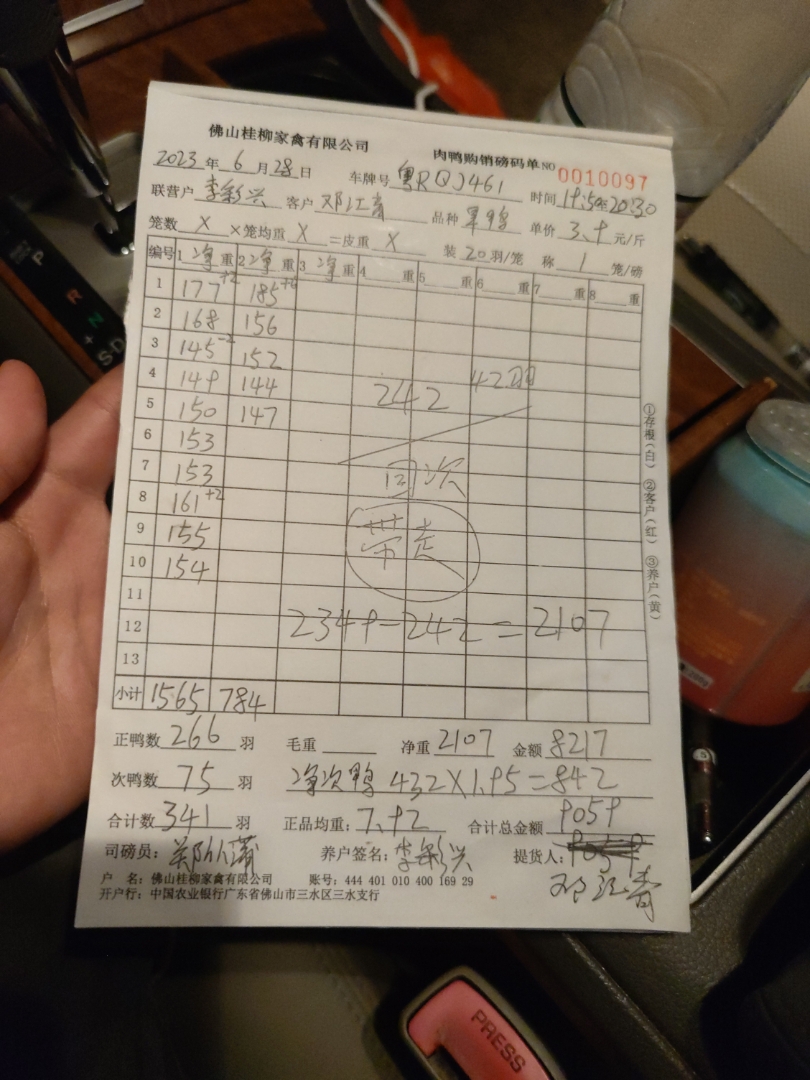 佛山桂柳家禽有限公司
肉鸭购销磅码单 NO 0010097
2023年6月28日 车牌号 粤RQJ461 时间
联营户 李彩兴 客户 邓江青 品种 单价 3.9 元/斤
笼数 X ×笼均重 X =皮重 X 装 20 羽/笼 称 1 笼/磅
编号 1 净重 2 净重 3 净重 4 重 5 重 6 重 7 重 8 重
1 177+2 185
2 168 156
3 145-2 152
4 149 144 242 42羽
5 150 147
6 153
7 153 回次
8 161+2
9 155 带走
10 154
11
12 2349-242=2107
13
小计 1565 784
正鸭数 266 羽 毛重 净重 2107 金额 8217
次鸭数 75 羽 净次鸭 432X1.95=842
合计数 341 羽 正品均重: 7.92 合计总金额 9059
司磅员: 养户签名: 李彩兴 提货人:
邓江青
户 名: 佛山桂柳家禽有限公司 账号: 444 401 010 400 169 29
开户行: 中国农业银行广东省佛山市三水区三水支行
①存根(白) ②客户(红) ③养户(黄)
P
R
N
+
S D
PRESS